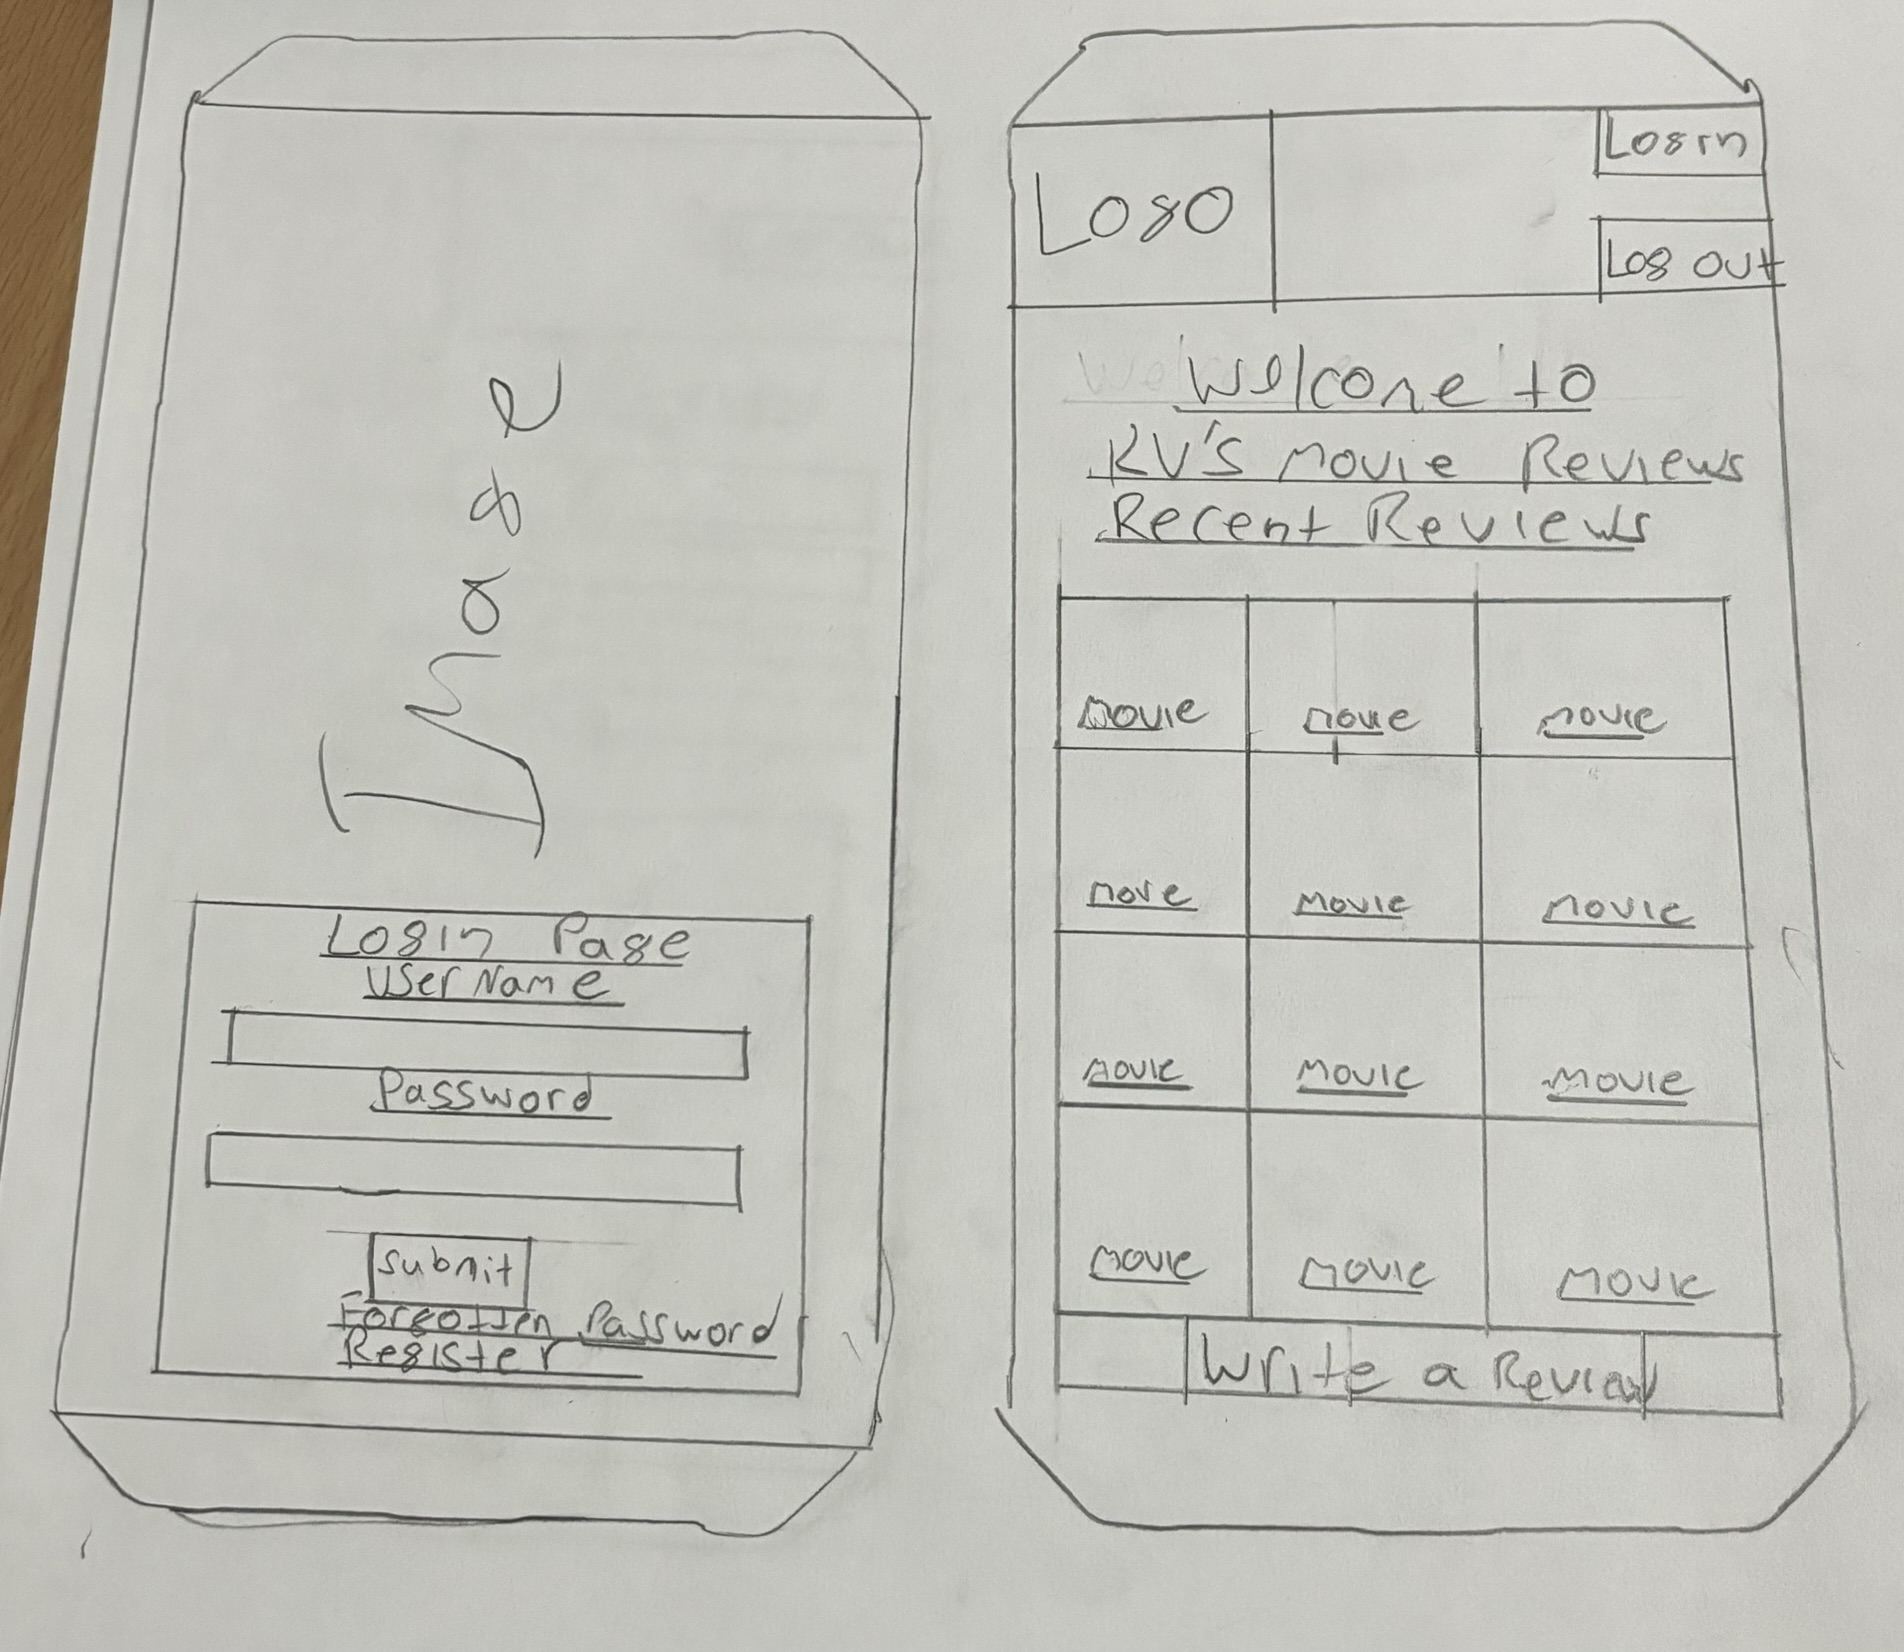 Image
Login Page
UserName
Password
Submit
Forgotten Password
Register
Logo
Login
Log out
Welcome to
KV's Movie Reviews
Recent Reviews
Movie movie movie
move Movie movie
movie Movie Movie
Movie Movie Movie
Write a Review